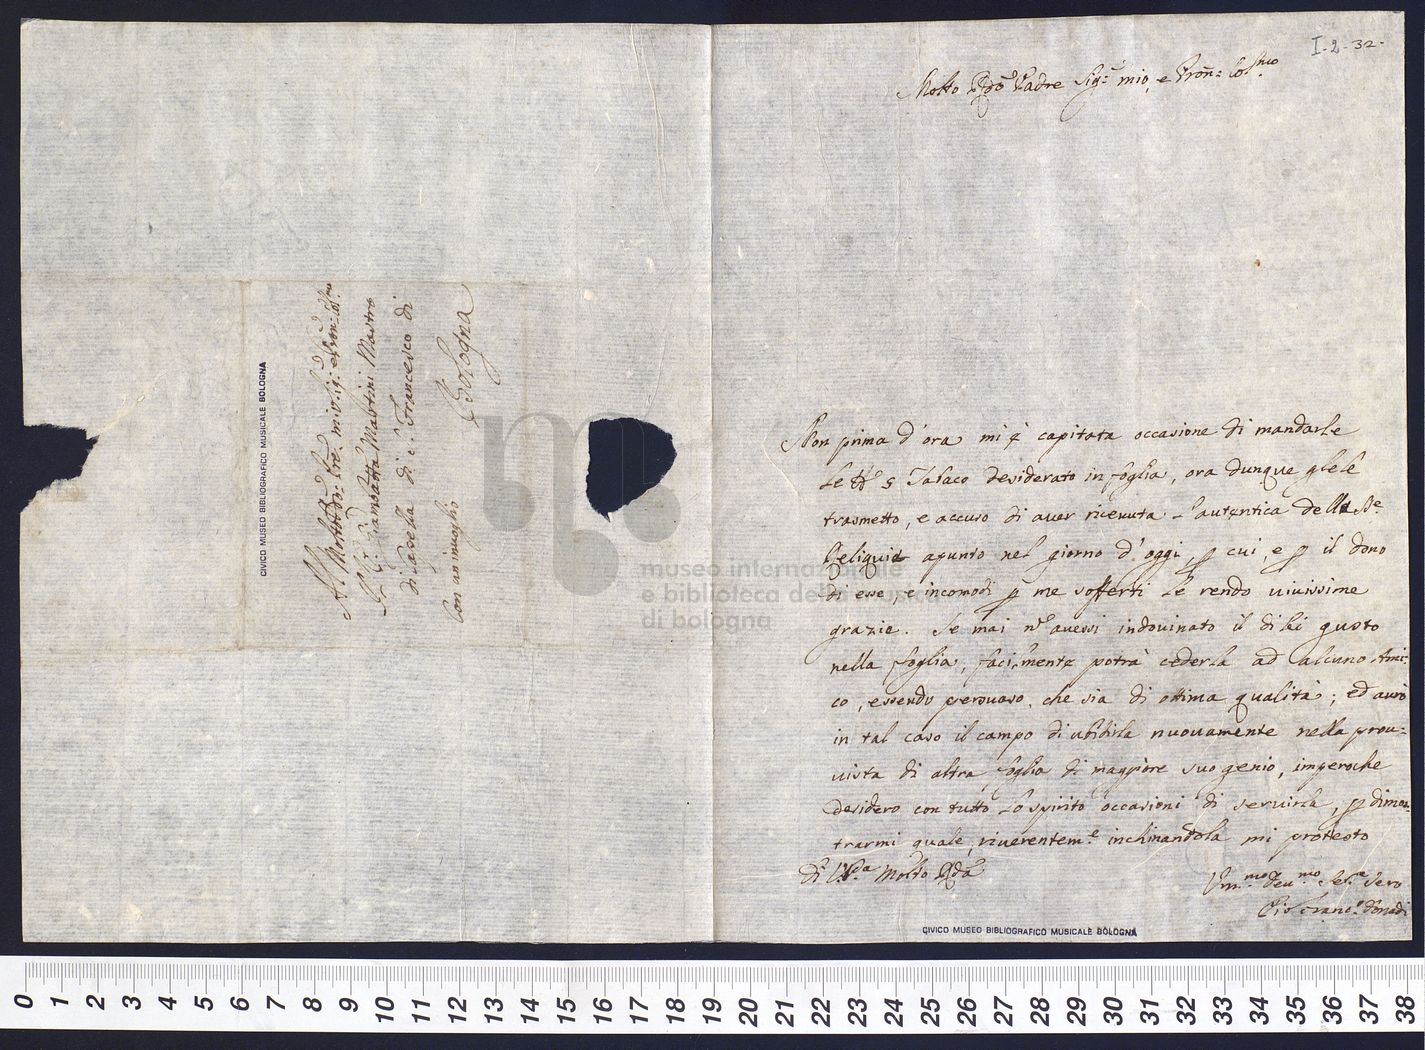 I-2-32-
Molto Rdo Padre Sigr mio, e Pron: Colmo
Non prima d'ora mi è capitata occasione di mandarle
Le ℔ 5 Tabaco desiderato in foglia, ora dunque glele
trasmetto, e accuso di aver ricevuta l'autentica delle Ste
Reliquie apunto nel giorno d'oggi, p cui, e p il dono
di esse, e incomodi p me sofferti Le rendo vivissime
grazie. Se mai nõ avessi indovinato il di lei gusto
nella foglia, facilmente potrà cederla ad alcuno Ami-
co, essendo persuaso, che sia di ottima qualità; ed avrò
in tal caso il campo di ubidirla nuovamente nella prov-
vista di altra foglia di maggiore suo genio, imperoche
desidero con tutto lo spirito occasioni di servirla, p dimos-
trarmi quale, riverentem.e inchinandola mi protesto
di V.P.a Molto Rda
Vm.mo Dev.mo Servre
Pio Franc.o Donadi
Al Molto Rdo Pre mio Sig: e Pron: Colmo
Il P. Giambatta Martini Mastro
di Capella di S. Francesco di
Con an involio
Bologna
CIVICO MUSEO BIBLIOGRAFICO MUSICALE BOLOGNA
CIVICO MUSEO BIBLIOGRAFICO MUSICALE BOLOGNA
museo internazionale
e biblioteca della musica
di bologna
0 1 2 3 4 5 6 7 8 9 10 11 12 13 14 15 16 17 18 19 20 21 22 23 24 25 26 27 28 29 30 31 32 33 34 35 36 37 38